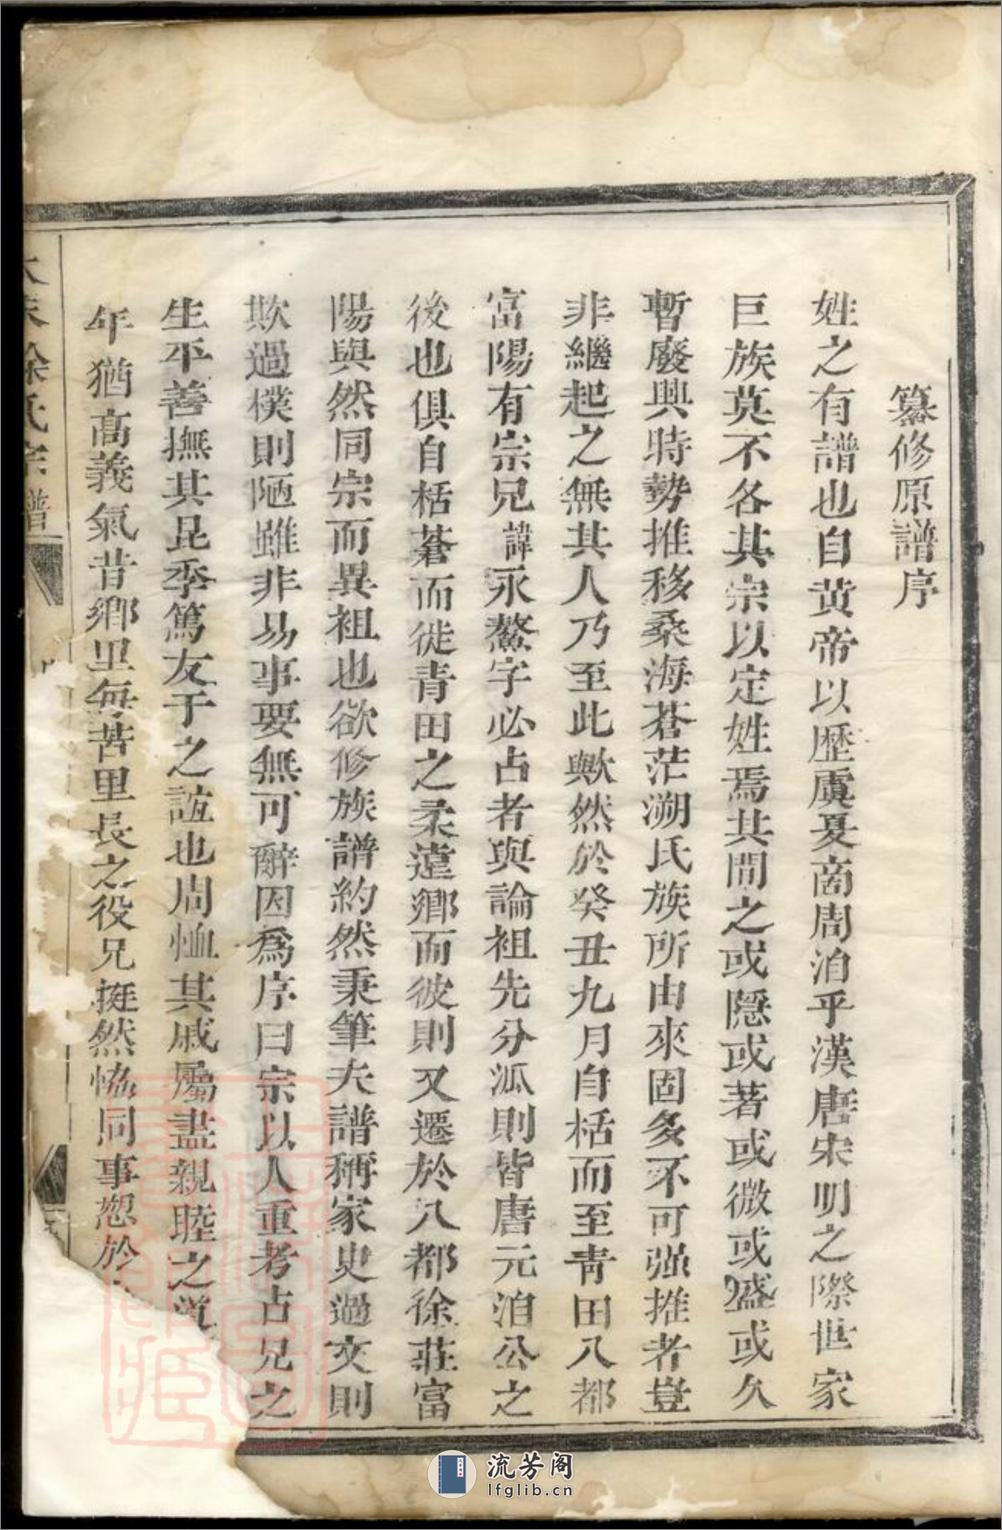 纂修原譜序
姓之有譜也自黄帝以歷虞夏商周洎乎漢唐宋明之際世家
巨族莫不各其宗以定姓焉其間之或隱或著或微或盛或久
暫廢興時勢推移桑海蒼茫溯氏族所由來固多不可强推者豈
非繼起之無其人乃至此歟然於癸丑九月自栝而至青田八都
富陽有宗兄諱永鰲字必占者與論祖先分派則皆唐元洎公之
後也俱自栝蒼而徙青田之柔遠鄉而彼則又遷於八都徐莊富
陽與然同宗而異祖也欲修族譜約然秉筆夫譜稱家史過文則
欺過樸則陋雖非易事要無可辭因爲序曰宗以人重考占兄之
生平善撫其昆季篤友于之誼也周恤其戚屬盡親睦之道
年猶高義氣昔鄉里每苦里長之役兄挺然恊同事恕於
徐氏宗譜
流芳阁
lfglib.cn